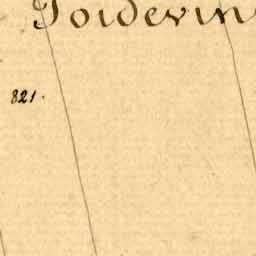 Poidevin
821.